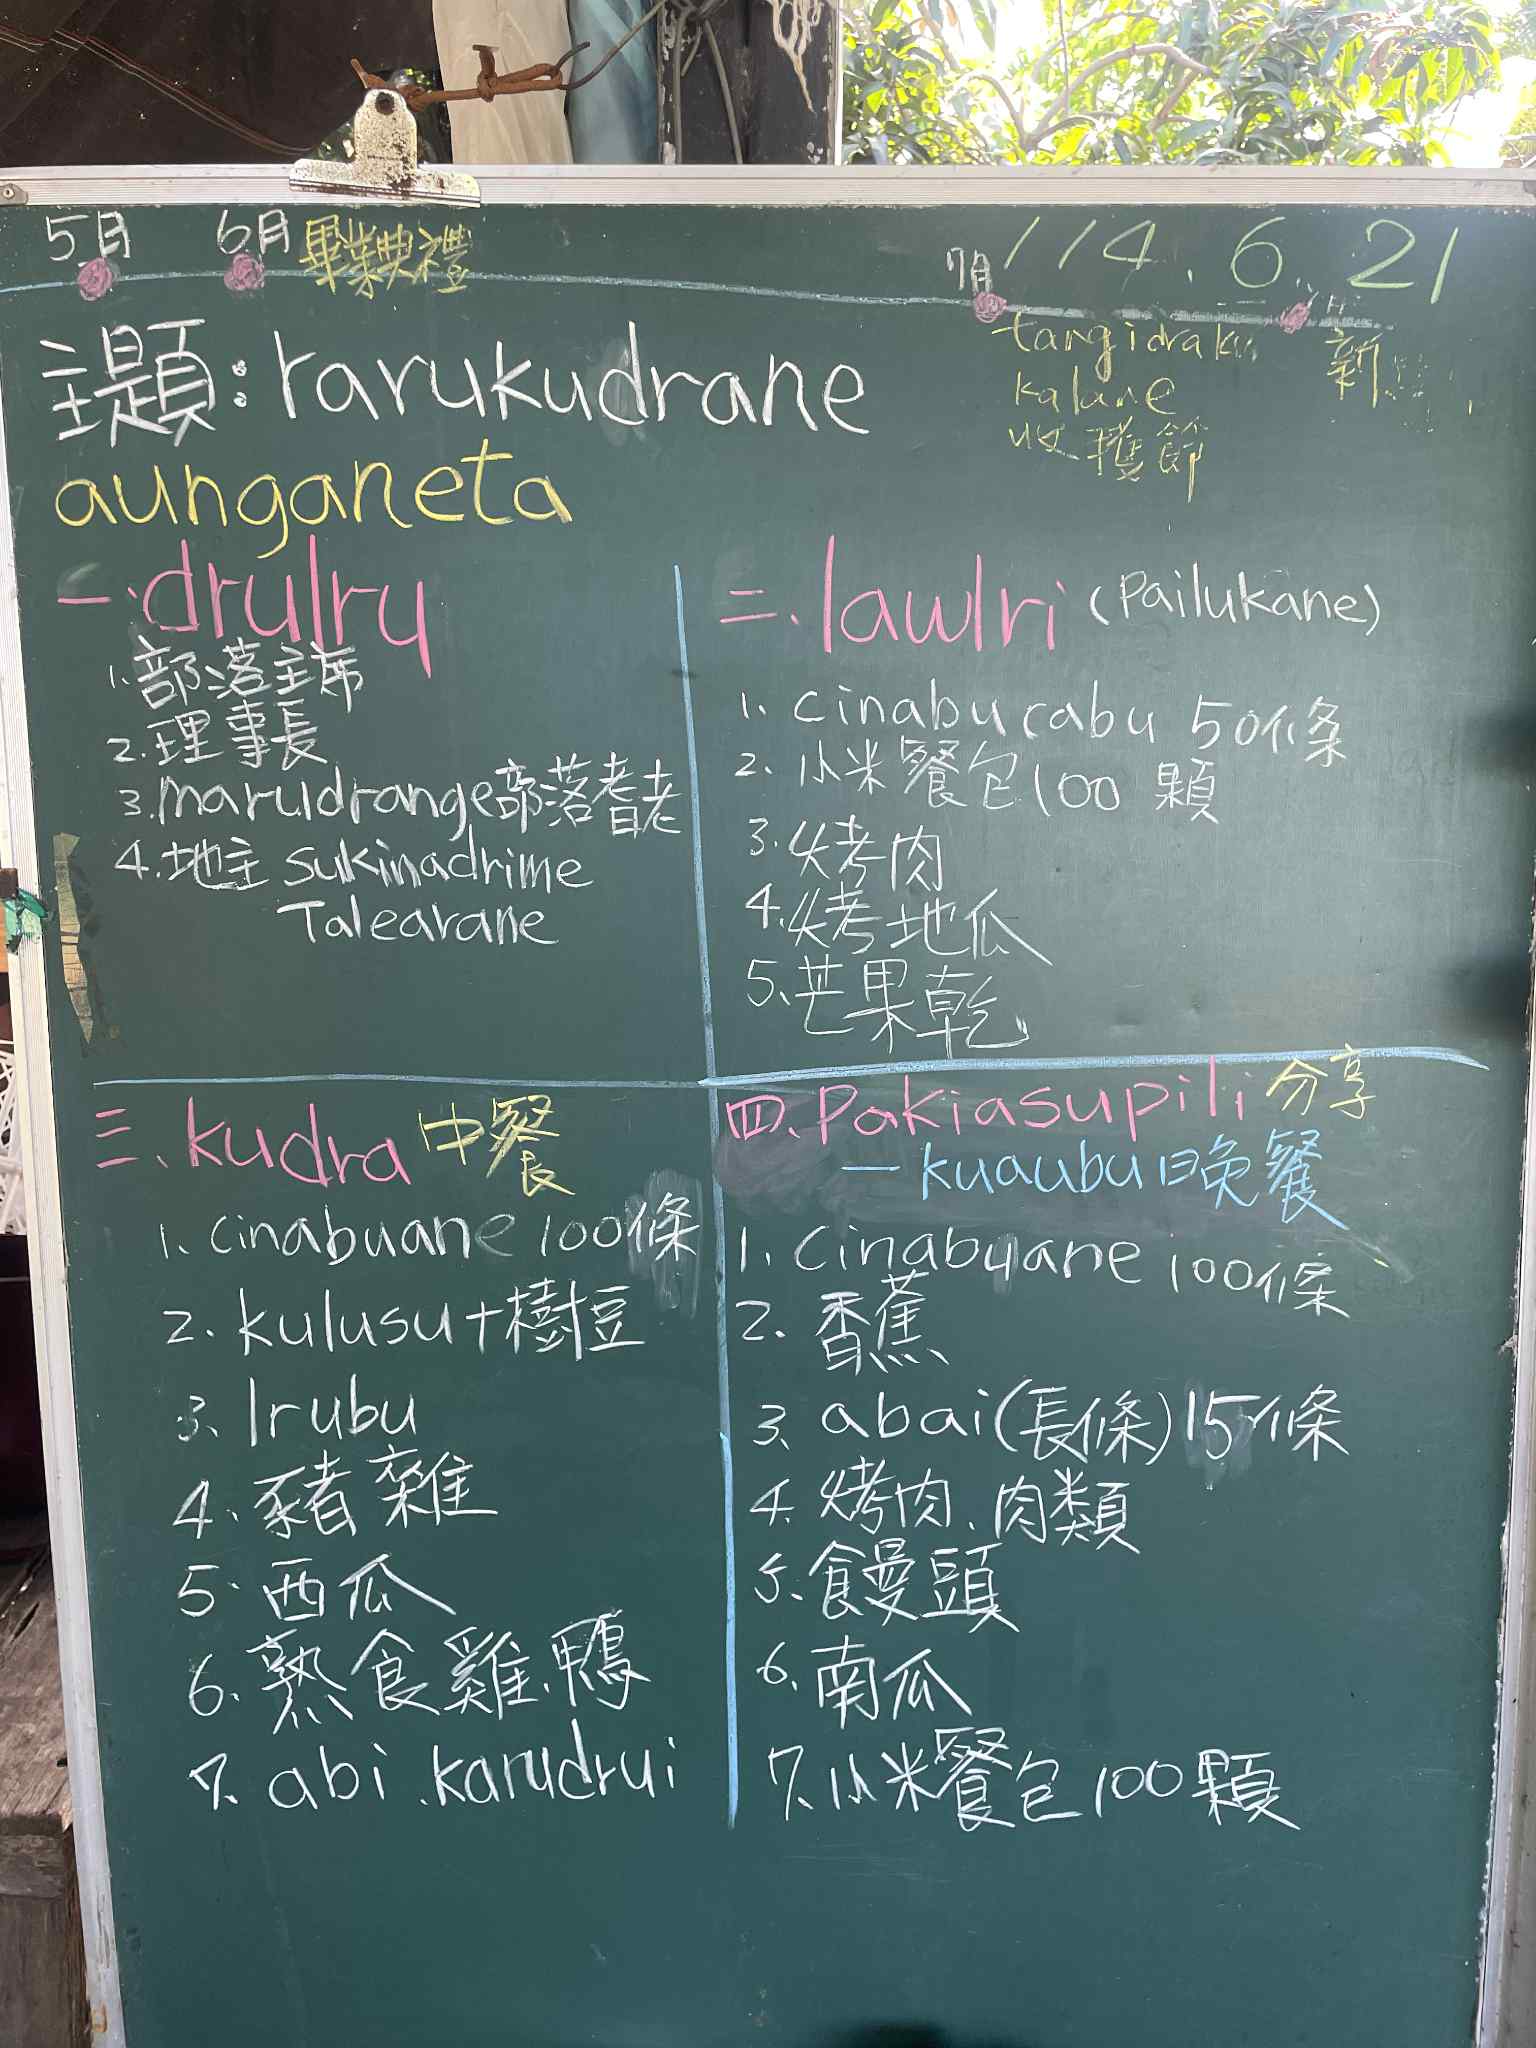 5月 6月 畢業典禮 7月 114.6.21
tangidraku
kalane
收穫節
新
主題:rarukudrane
aunganeta
一.drulru
1.部落主席
2.理事長
3.marudrange部落耆老
4.地主 sukinadrime
Talearane
二.lawlri (Pailukane)
1. cinaburabu 50條
2. 小米餐包100 顆
3.烤肉
4.烤地瓜
5.芒果乾
三.kudra 中餐
1. cinabuane 100條
2. kulusu+樹豆
3. lrubu
4. 豬雜
5. 西瓜
6. 熟食雞、鴨
7. abi .karudrui
四.Pakiasupili 分享
一kuaubu晚餐
1. cinabuane 100條
2. 香蕉
3. abai(長條)15條
4. 烤肉、肉類
5.饅頭
6.南瓜
7.小米餐包100顆